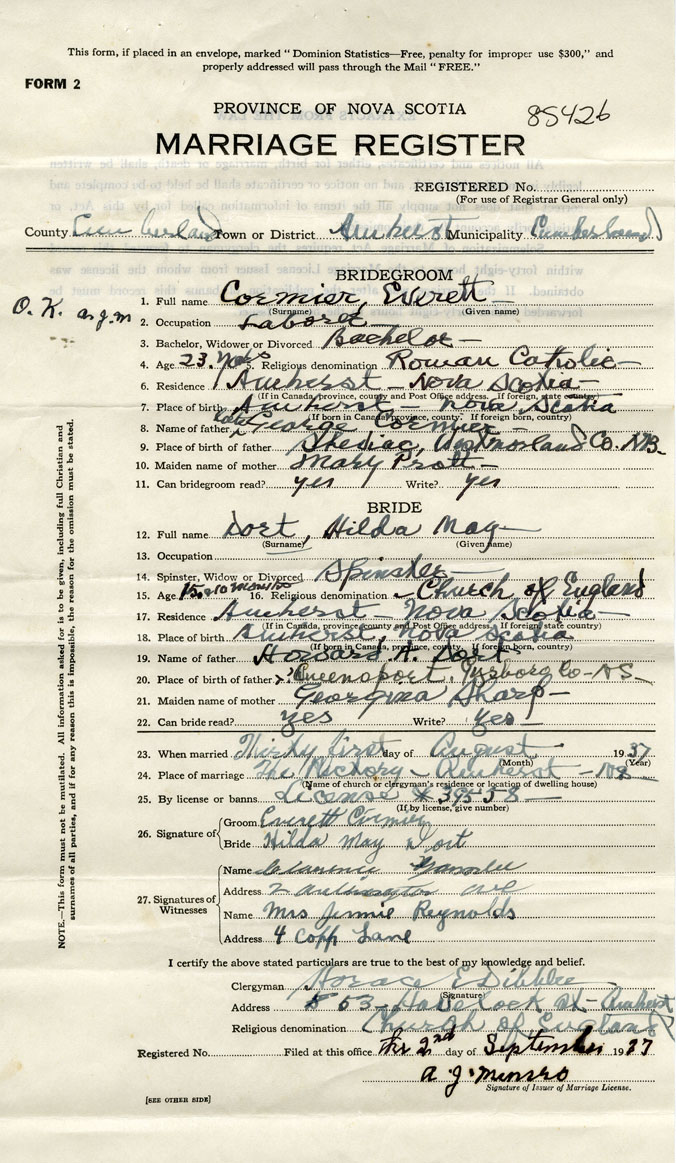 This form, if placed in an envelope, marked "Dominion Statistics—Free, penalty for improper use $300," and
properly addressed will pass through the Mail "FREE."
FORM 2
PROVINCE OF NOVA SCOTIA
85426
MARRIAGE REGISTER
REGISTERED No.
(For use of Registrar General only)
County Cumberland Town or District Amherst Municipality Cumberland
BRIDEGROOM
O. K. a.g.m
1. Full name Cormier, Everett
(Surname) (Given name)
2. Occupation Laborer
3. Bachelor, Widower or Divorced Bachelor
4. Age 23 5. Religious denomination Roman Catholic
6. Residence Amherst - Nova Scotia
(If in Canada, province, county and Post Office address. If foreign, state country)
7. Place of birth Amherst - Nova Scotia
(If born in Canada, province, county. If foreign born, country)
8. Name of father George Cormier
9. Place of birth of father Shediac, Westmorland Co. N.B.
10. Maiden name of mother Mary
11. Can bridegroom read? yes Write? yes
BRIDE
12. Full name Dort, Hilda May
(Surname) (Given name)
13. Occupation
14. Spinster, Widow or Divorced Spinster
15. Age 15 10 months 16. Religious denomination Church of England
17. Residence Amherst - Nova Scotia
(If in Canada, province county and Post Office address. If foreign state country)
18. Place of birth Amherst, Nova Scotia
(If born in Canada, province, county. If foreign born, country)
19. Name of father Howard Dort
20. Place of birth of father Queensport, Co - NS
21. Maiden name of mother Georgina Sharp
22. Can bride read? yes Write? yes
23. When married Thirty first day of August 1937
(Month) (Year)
24. Place of marriage The Rectory - Amherst - NS
(Name of church or clergyman's residence or location of dwelling house)
25. By license or banns License # 39558
(If by license, give number)
26. Signature of
Groom Everett Cormier
Bride Hilda May Dort
27. Signatures of Witnesses
Name Clarence
Address 2 Ave
Name Mrs Jennie Reynolds
Address 4 Copp Lane
I certify the above stated particulars are true to the best of my knowledge and belief.
Clergyman Horace E Dibblee
(Signature)
Address 53 - Havelock St - Amherst
Religious denomination Church of England
Registered No. Filed at this office The 2nd day of September 1937
a. g. Munro
Signature of Issuer of Marriage License.
[SEE OTHER SIDE]
NOTE.—This form must not be mutilated. All information asked for is to be given, including full Christian and
surnames of all parties, and if for any reason this is impossible, the reason for the omission must be stated.